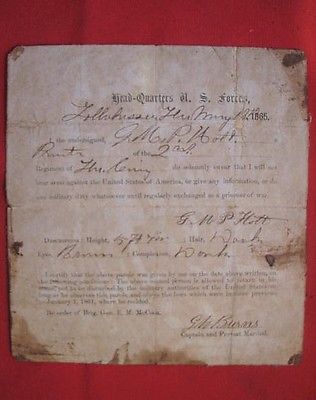 Head-Quarters U. S. Forces,
Tallahassee Fla. May 1865.
I, the undersigned, G. M. P. Hott
of the 2nd
Regiment of Fla. Cavy do solemnly swear that I will not
bear arms against the United States of America, or give any information, or do
any military duty whatsoever until regularly exchanged as a prisoner of war.
G. M. P. Hott
Description: Height, 5 ft Hair, Dark
Eyes, Brown Complexion, Dark
I certify that the above parole was given by me on the date above written, on
the following conditions: The above named person is allowed to return to his
home, not to be disturbed by the military authorities of the United States so
long as he observes this parole, and obeys the laws which were in force previous to
January 1, 1861, where he resided.
By order of Brig. Gen. E. M. McCook.
Captain and Provost Marshal.